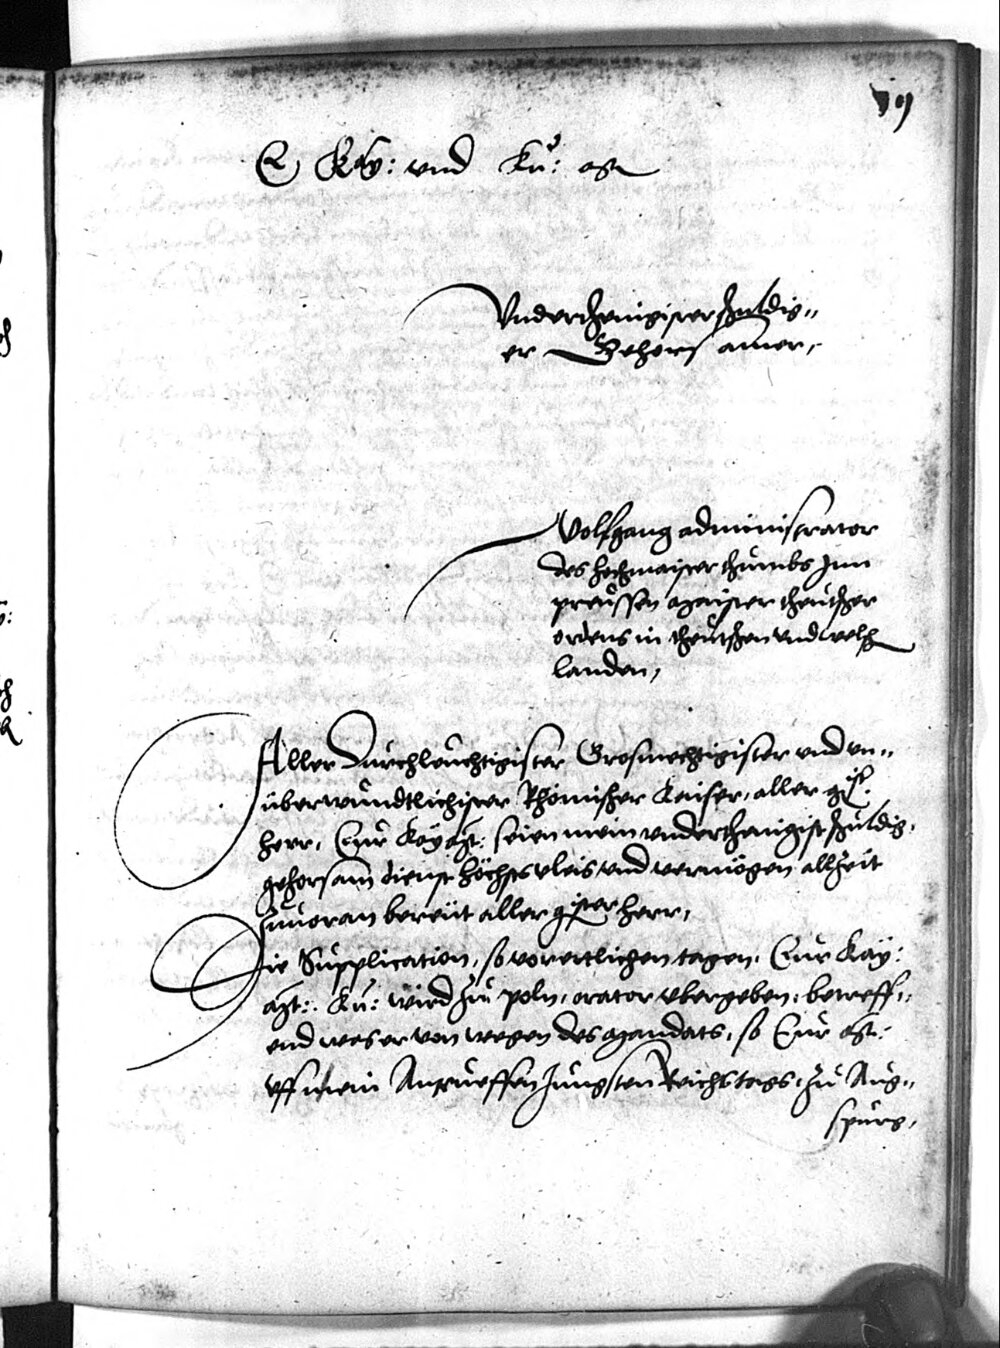 E Kay: vnd Kü: Mt
Vnderthenigister schuldig„
er Gehorsamer,
Wolfgang administrator
des hochmaisterthumbs Inn
preussen Maister theutscher
ordens in theutschen vnd welsch
landen,
Aller durchleuchtigister Grosmechtigister vnd vn„
überwundtlichister Rhömischer Keiser, aller gst:
herr, Eur Kay Mt: seien mein vnderthenigist schuldig,
gehorsam dienst höchsts vleis vnd vermögen allzeit
zuuoran bereit aller gister herr,
Die Supplication, so vor etlichen tagen, Eur Kay:
Mt: Kü: wird zu poln, orator vbergeben, betreff„
end wes er von wegen des Mandats, so Eur Mt:
vff mein Anrueffen Jungsten Reichstags, zu Aug„
spurg,